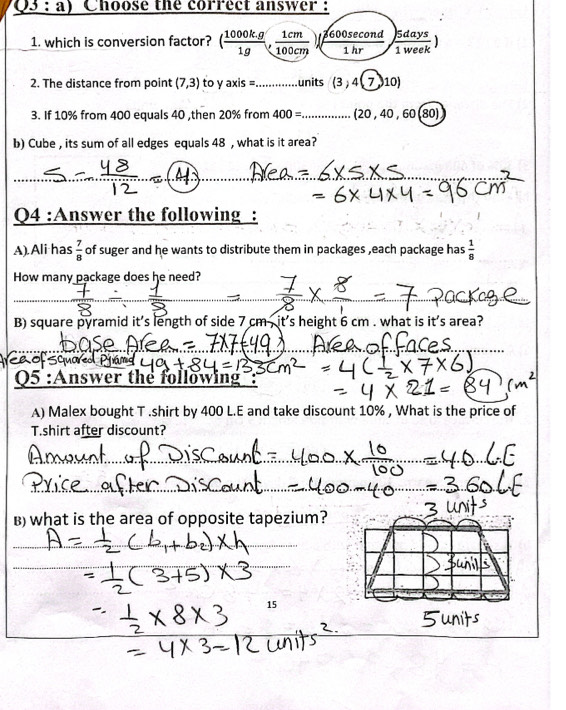 Q3 : a) Choose the correct answer :
1. which is conversion factor? (1000k.g/1g , 1cm/100cm , 3600second/1 hr , 5days/1 week )
2. The distance from point (7,3) to y axis =.............units (3 , 4 , 7 , 10)
3. If 10% from 400 equals 40 ,then 20% from 400 =............... (20 , 40 , 60 , 80)
b) Cube , its sum of all edges equals 48 , what is it area?
S = 48/12 = 4 Area = 6×S×S
= 6×4×4 = 96 cm²
Q4 :Answer the following :
A).Ali has 7/8 of suger and he wants to distribute them in packages ,each package has 1/8
How many package does he need?
7/8 ÷ 1/8 = 7/8 × 8/1 = 7 package
B) square pyramid it's length of side 7 cm , it's height 6 cm . what is it's area?
base Area = 7×7=49 Area of faces
Area of squared Pyramid 49+84=133cm² = 4(1/2 ×7×6)
Q5 :Answer the following :
= 4 × 21 = 84 cm²
A) Malex bought T .shirt by 400 L.E and take discount 10% , What is the price of
T.shirt after discount?
Amount of Discount = 400 × 10/100 = 40 LE
Price after Discount = 400-40 = 360 LE
B) what is the area of opposite tapezium?
3 units
A = 1/2 (b1+b2)×h
3units
= 1/2 (3+5)×3
= 1/2 ×8×3
15
5 units
= 4×3=12 units².